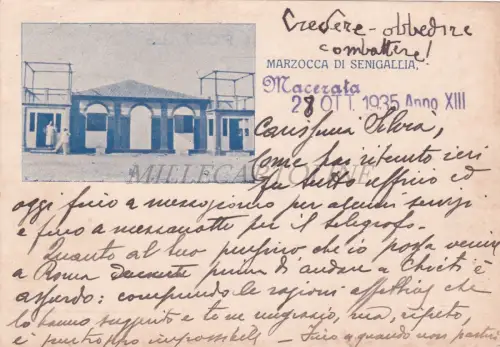 Credere - obbedire
combattere!
MARZOCCA DI SENIGALLIA
Macerata
28 OTT. 1935 Anno XIII
Carissima Silvia,
Come hai ritenuto ieri
fu tutto ufficio ed
MILLECARTOLINE
oggi fino a mezzogiorno per alcuni servizi
e fino a mezzanotte per il telegrafo.
Quanto al tuo pensiero che io possa venire
a Roma prima di andare a Chieti è
assurdo: comprendo le ragioni affettive che
lo hanno suggerito e te ne ringrazio, ma, ripeto,
è purtroppo impossibile - Fino a quando non